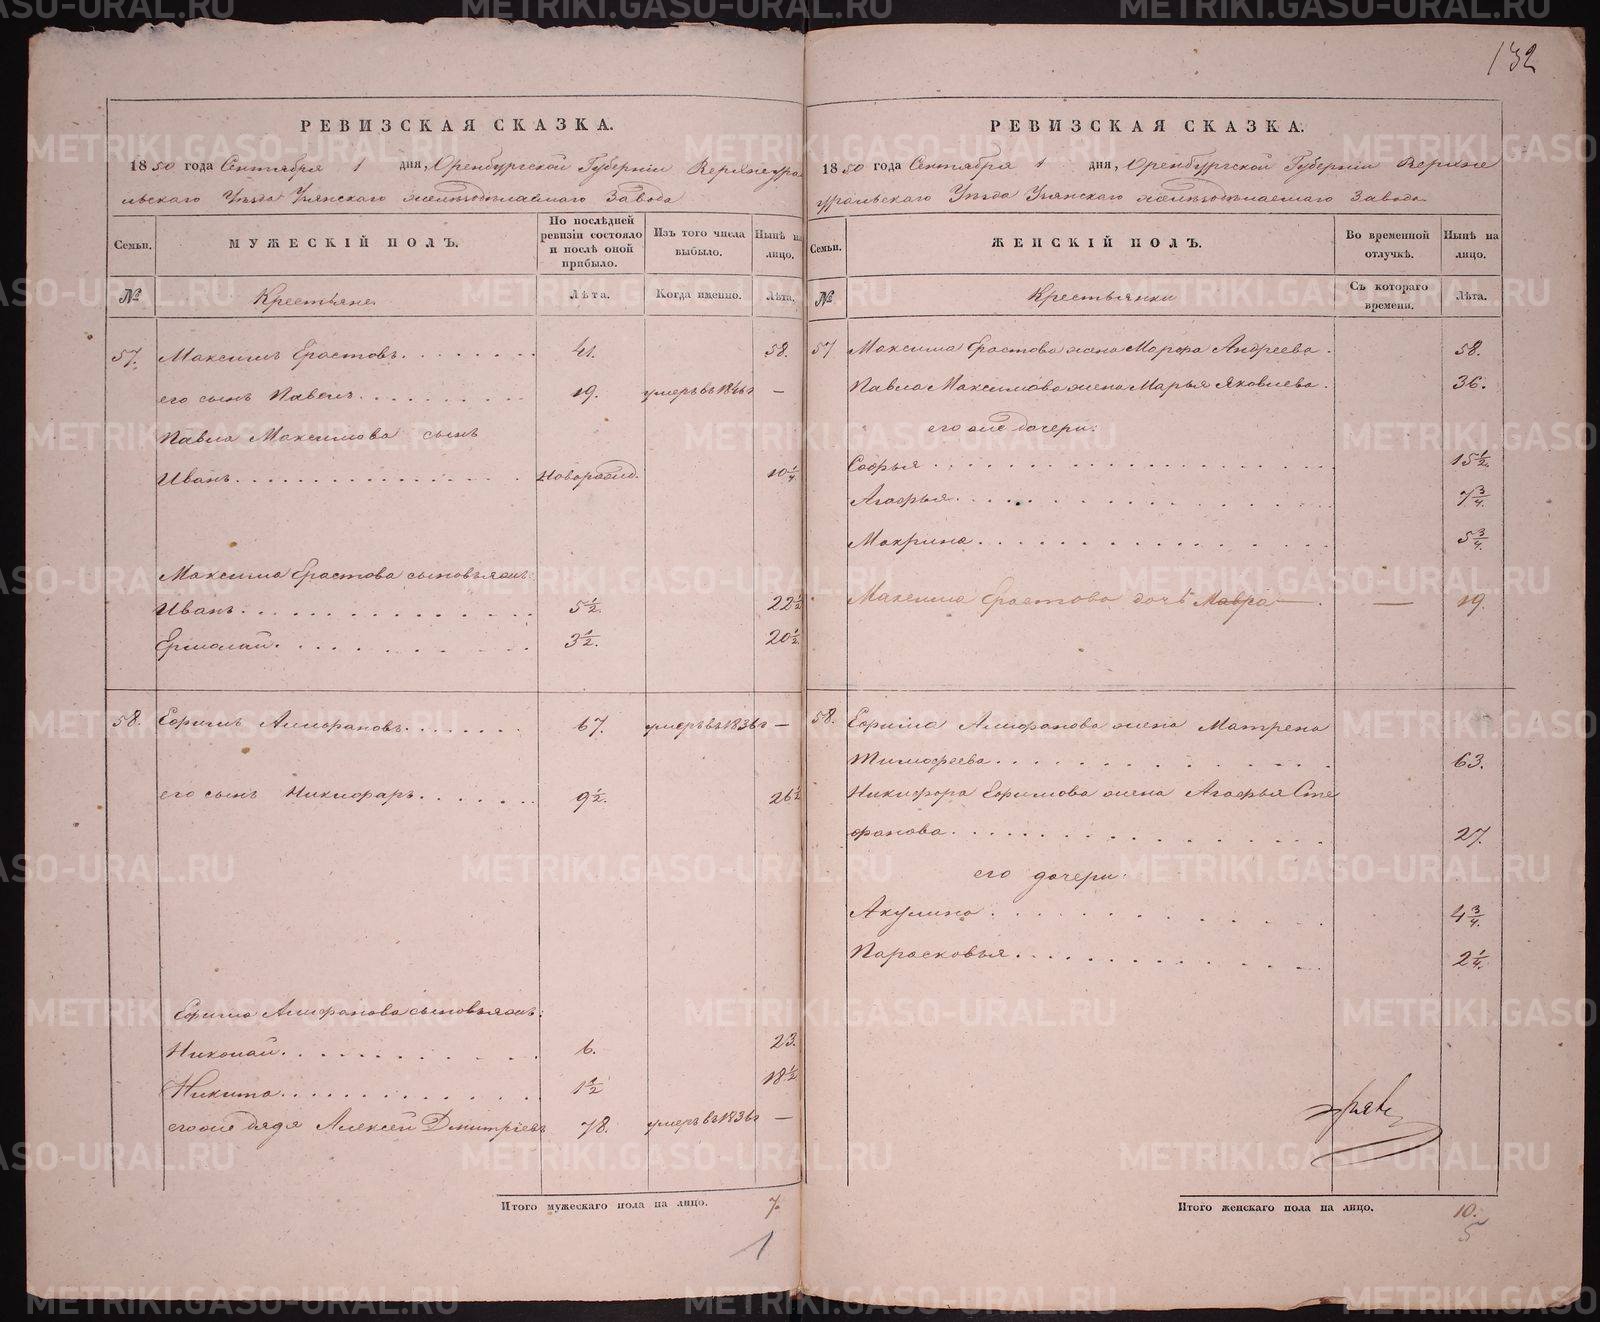 132
РЕВИЗСКАЯ СКАЗКА.
1850 года Сентября 1 дня, Оренбургской Губерніи Верхнеура
льскаго Уѣзда Узянскаго желѣзодѣлаемаго Завода
Семьи. МУЖЕСКІЙ ПОЛЪ. По послѣдней ревизіи состояло и послѣ оной прибыло. Изъ того числа выбыло. Нынѣ на лицо.
№ Крестьяне Лѣта. Когда именно. Лѣта.
57. Максимъ Ерастовъ 41. 58.
его сынъ Павелъ 19. умеръ въ 1846 г —
Павла Максимова сынъ
Иванъ Новорожд. 10 1/4
Максима Ерастова сыновья жъ:
Иванъ 5 1/2. 22 1/2
Ермолай 3 1/2. 20 1/2.
58. Ефимъ Алифановъ 67. умеръ въ 1836 г —
его сынъ Никифаръ 9 1/2. 26 1/2
Ефима Алифанова сыновья жъ:
Николай 6. 23.
Никита 1 1/2 18 1/2
его же дядя Алексей Дмитріевъ 78. умеръ въ 1836 г —
Итого мужескаго пола на лицо. 7.
1
РЕВИЗСКАЯ СКАЗКА.
1850 года Сентября 1 дня, Оренбургской Губерніи Верхне
уральскаго Уѣзда Узянскаго желѣзодѣлаемаго Завода
Семьи. ЖЕНСКІЙ ПОЛЪ. Во временной отлучкѣ. Нынѣ на лицо.
№ Крестьянки Съ котораго времени. Лѣта.
57 Максима Ерастова жена Марфа Андреева 58.
Павла Максимова жена Марья Яковлева 36.
его же дочери:
Софья 15 1/2.
Агафья 7 3/4.
Макрина 5 3/4.
Максима Ерастова дочь Мавра — 19.
58. Ефима Алифанова жена Матрена
Тимофеева 63.
Никифора Ефимова жена Агафья Сте
фанова 27.
его дочери:
Акулина 4 3/4.
Парасковья 2 1/4.
Итого женскаго пола на лицо. 10.
5
METRIKI.GASO-URAL.RU